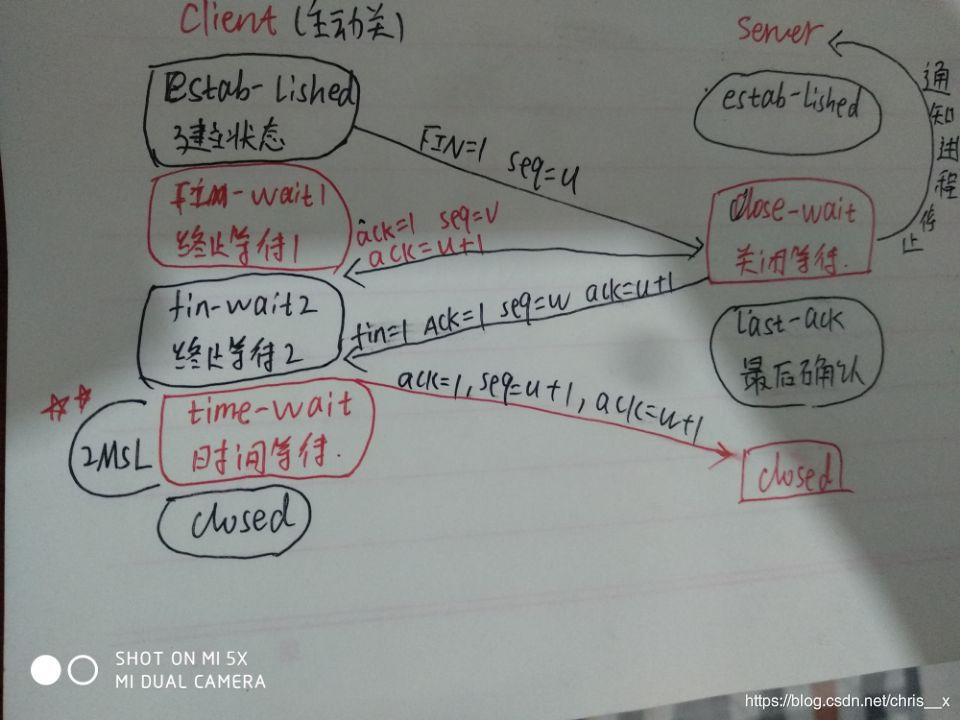 Client (主动关)
Server
estab-lished
建立状态
estab-lished
通知进程停止
FIN=1 seq=u
Fin-wait1
终止等待1
close-wait
关闭等待.
ack=1 seq=v
ack=u+1
fin-wait2
终止等待2
fin=1 ACK=1 seq=w ack=u+1
last-ack
最后确认
ack=1, seq=u+1, ack=u+1
2MSL
time-wait
时间等待.
closed
closed
SHOT ON MI 5X
MI DUAL CAMERA
https://blog.csdn.net/chris__x